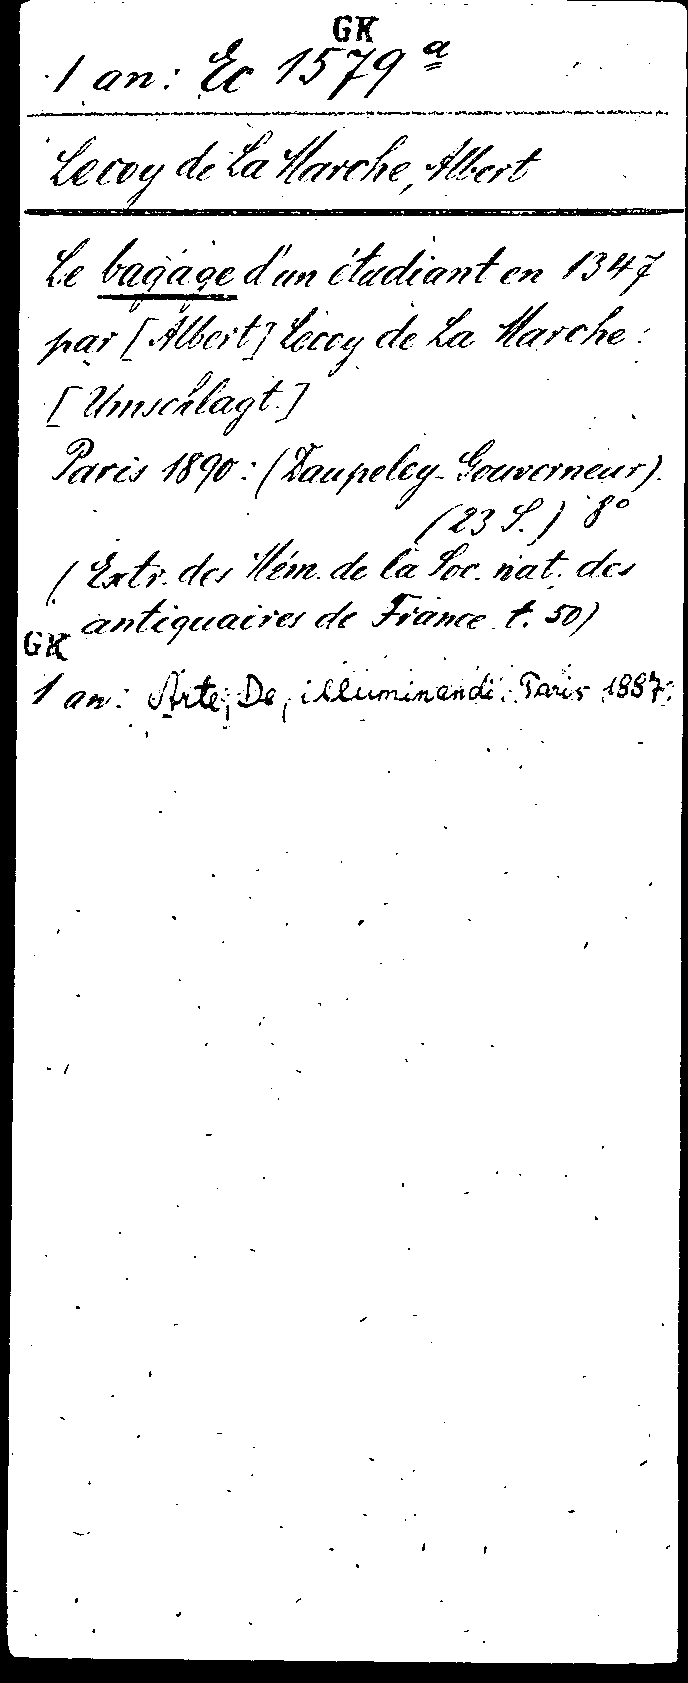 GK
1 an: Ec 1579ª
Lecoy de La Marche, Albert
Le bagage d'un étudiant en 1347
par [Albert] Lecoy de La Marche:
[Umschlagt.]
Paris 1890: (Daupeley-Gouverneur).
(23 S.) 8°
(Extr. des Mém. de la Soc. nat. des
antiquaires de France t. 50)
GK
1 an: Arte, De, illuminandi. Paris 1887.